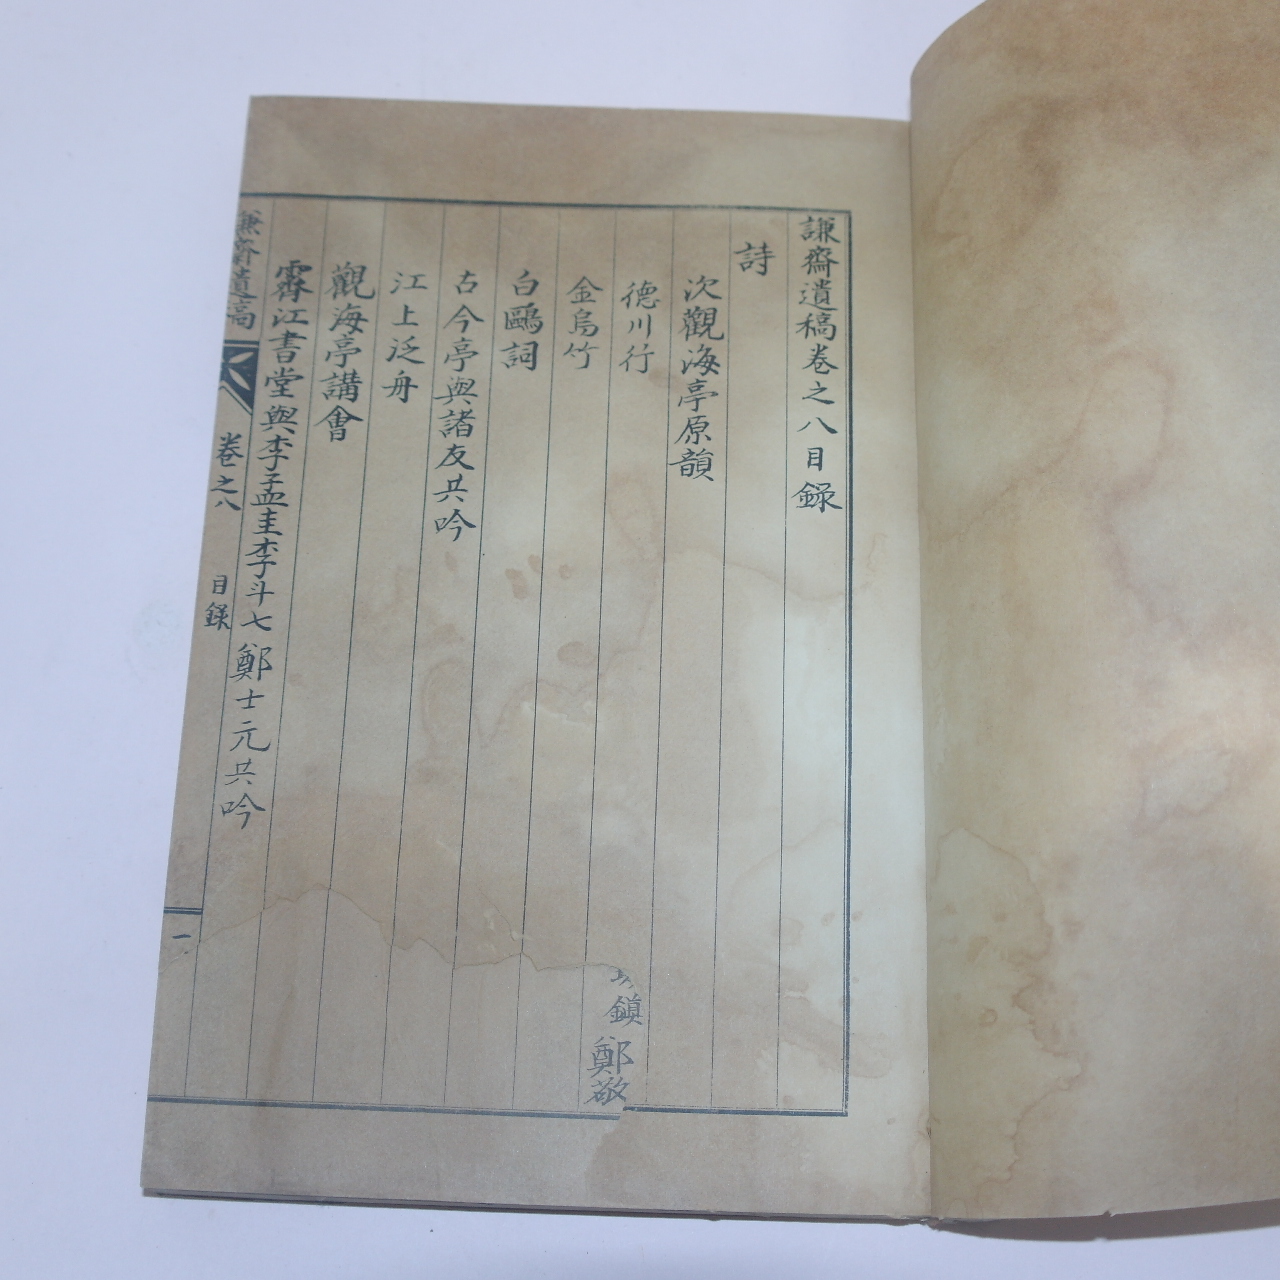 謙齋遺稿卷之八目錄
詩
次觀海亭原韻
德川行
金烏竹
白鷗詞
古今亭與諸友共吟
江上泛舟
觀海亭講會
霽江書堂與李孟圭李斗七鄭士元共吟
鎮
鄭敬
謙齋遺稿
卷之八
目錄
一